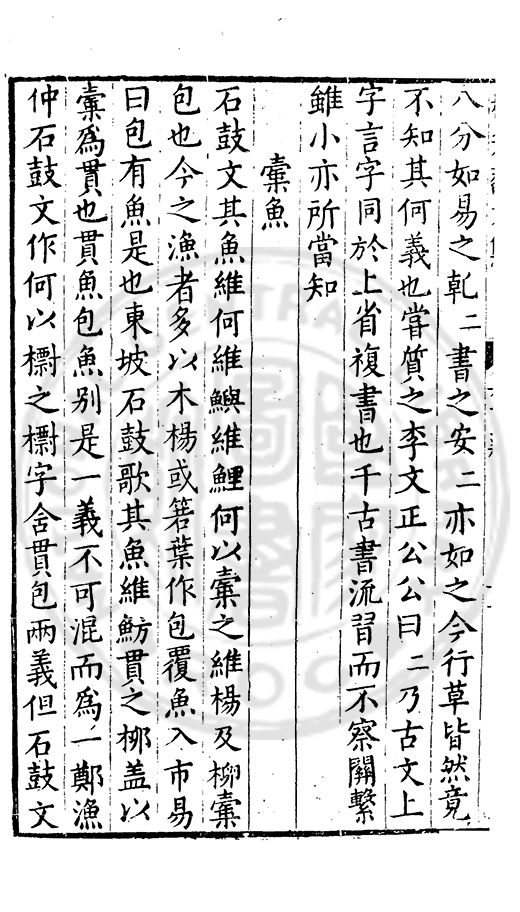 八分如易之乹二書之安二亦如之今行草皆然竟
不知其何義也嘗質之李文正公公曰二乃古文上
字言字同於上省複書也千古書流習而不察關繫
雖小亦所當知
橐魚
石鼓文其魚維何維鱮維鯉何以橐之維楊及柳橐
包也今之漁者多以木楊或箬葉作包覆魚入市易
曰包有魚是也東坡石鼓歌其魚維魴貫之柳盖以
橐爲貫也貫魚包魚别是一義不可混而爲一鄭漁
仲石鼓文作何以𣝗之𣝗字舍貫包兩義但石鼓文